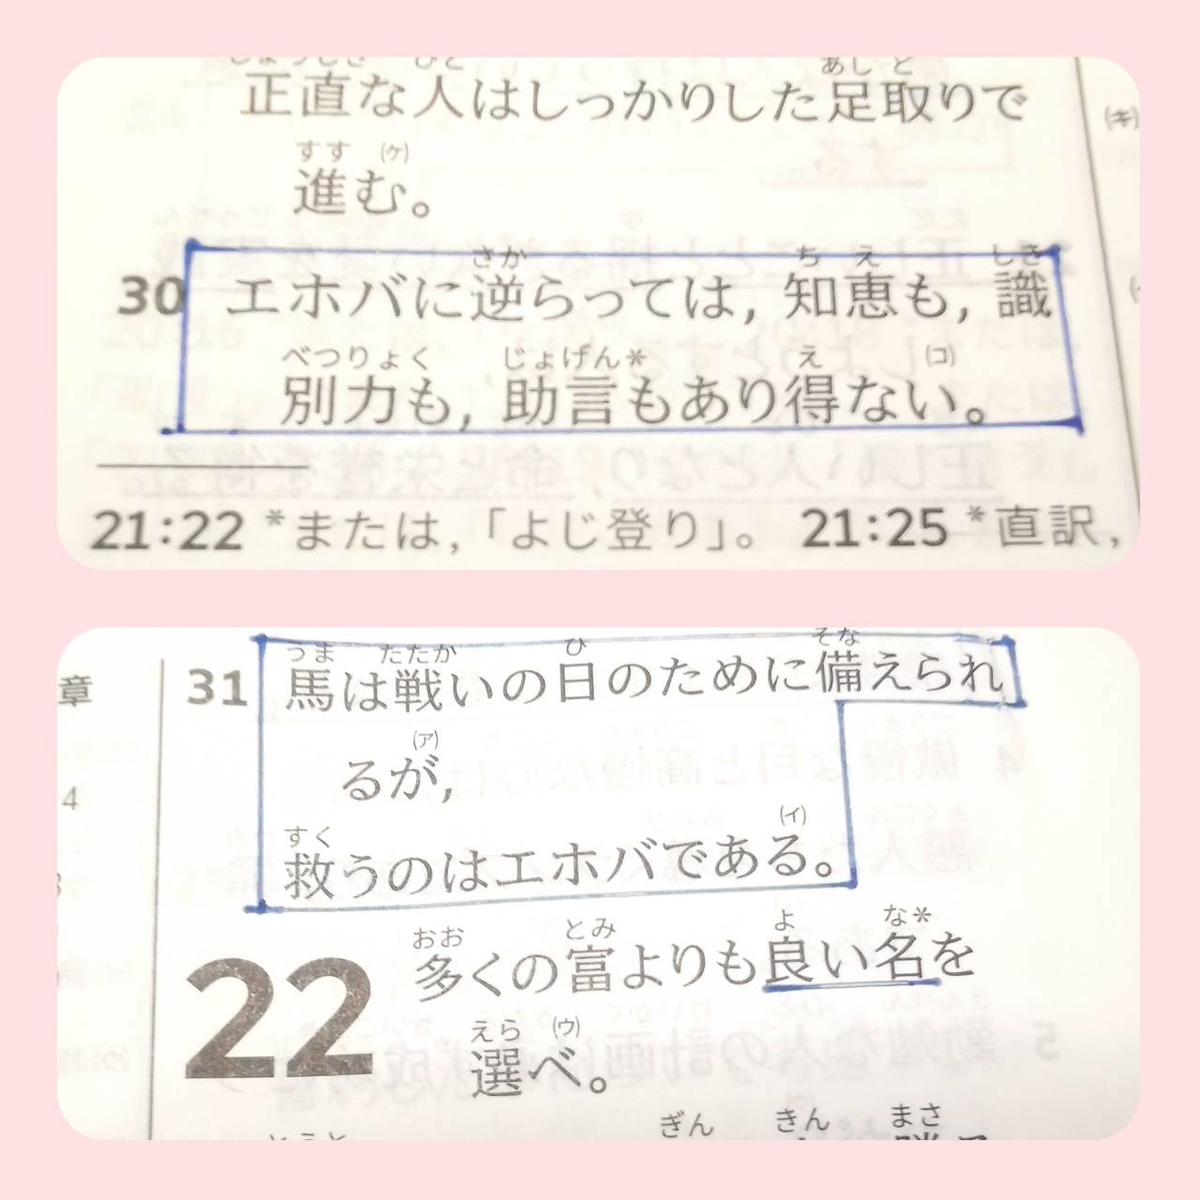 正直な人はしっかりした足取りで
進む。(ケ)
30 エホバに逆らっては, 知恵も, 識
別力も, 助言*もあり得ない。(コ)
21:22 *または,「よじ登り」。 21:25 *直訳,
(キ)
章
4
31 馬は戦いの日のために備えられ
るが,(ア)
救うのはエホバである。(イ)
22 多くの富よりも良い名*を
選べ。(ウ)
ぎん きん まさ